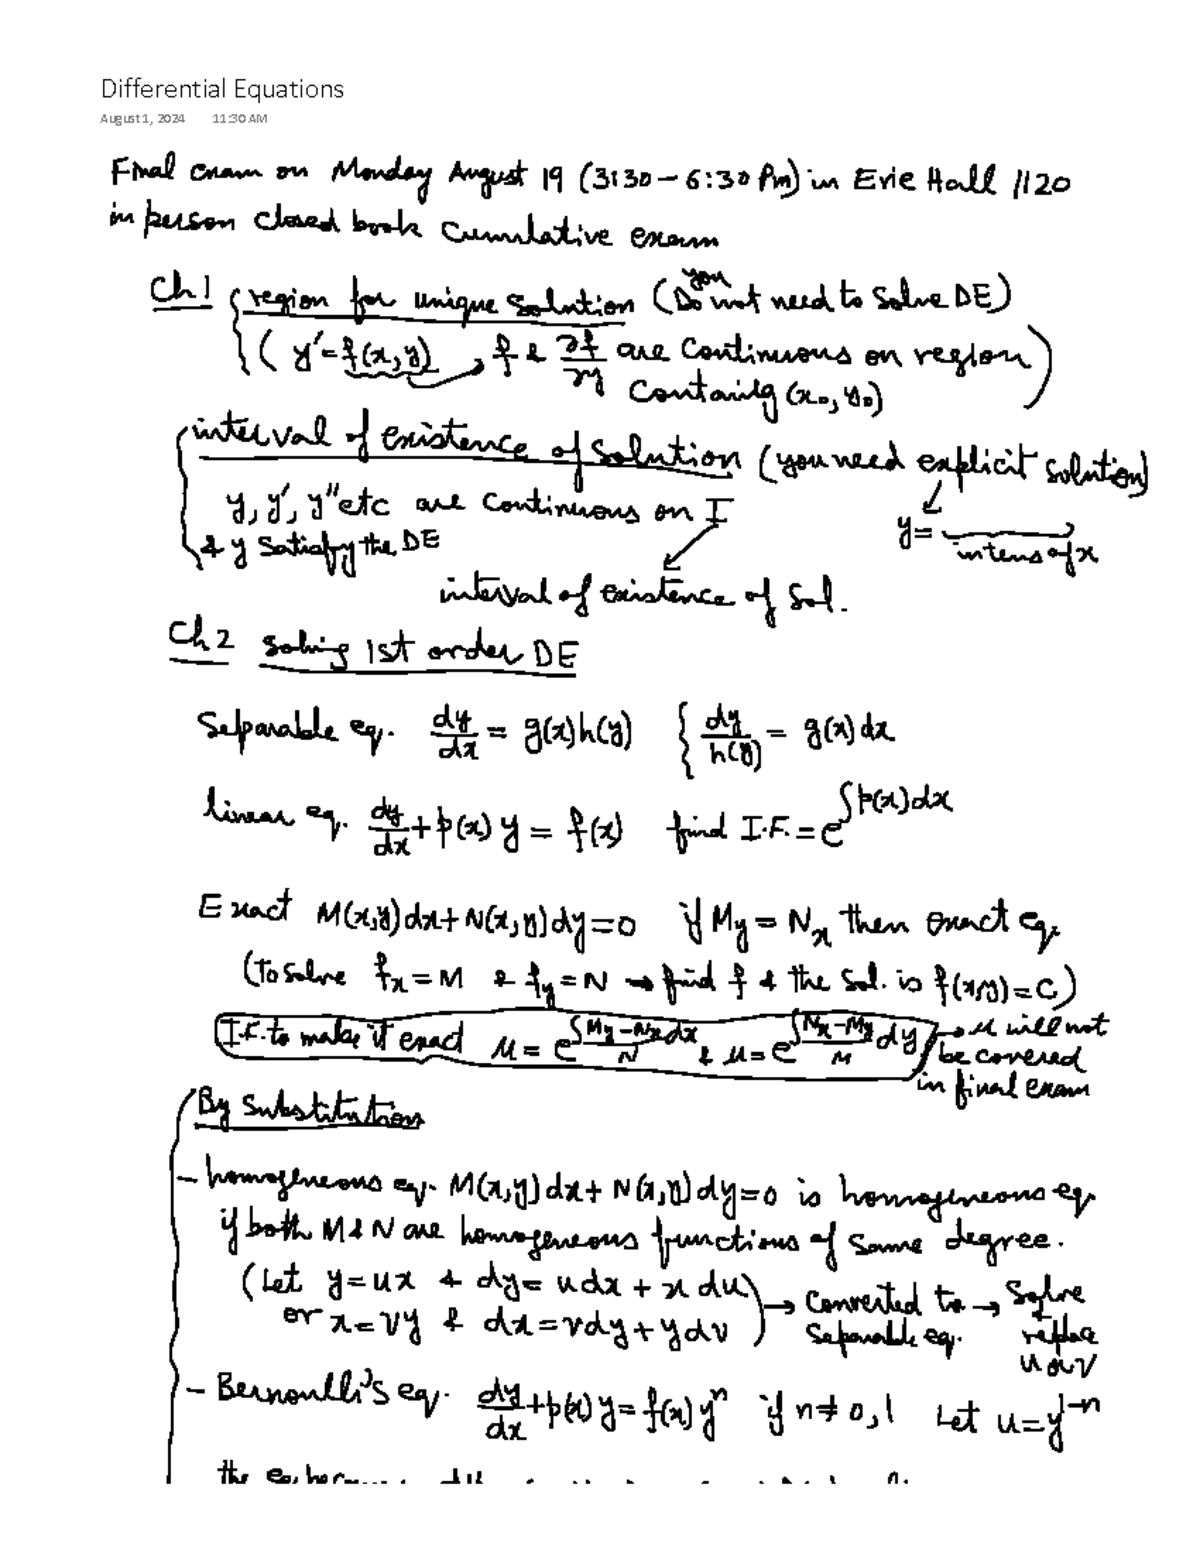 Differential Equations
August 1, 2024 11:30 AM
Final exam on Monday August 19 (3:30 – 6:30 Pm) in Erie Hall 1120
in person closed book cumulative exam
Ch 1 region for unique solution (Do you not need to solve DE)
(y' = f(x,y) → f & ∂f/∂y are continuous on region
containig (x₀, y₀))
interval of existence of solution (you need explicit solution)
y, y', y'' etc are continuous on I
y = intems of x
& y satisfy the DE
interval of existence of sol.
Ch 2 solving 1st order DE
Separable eq. dy/dx = g(x)h(y) { dy/h(y) = g(x)dx
linear eq. dy/dx + p(x) y = f(x) find I.F. = e^∫p(x)dx
Exact M(x,y)dx + N(x,y)dy = 0 if My = Nx then exact eq.
(To solve fx = M & fy = N → find f & the sol. is f(x,y) = C)
I.F. to make it exact μ = e^∫(My – Nx)/N dx & μ = e^∫(Nx – My)/M dy → it will not
be covered
in final exam
By Substitution
– homogeneous eq. M(x,y)dx + N(x,y)dy = 0 is homogeneous eq.
if both M & N are homogeneous functions of same degree.
(Let y = ux & dy = udx + x du
or x = vy & dx = vdy + ydv) → Converted to separable eq. → Solve & replace u or v
– Bernoulli's eq. dy/dx + p(x) y = f(x) yⁿ if n ≠ 0, 1 Let u = y^1–n